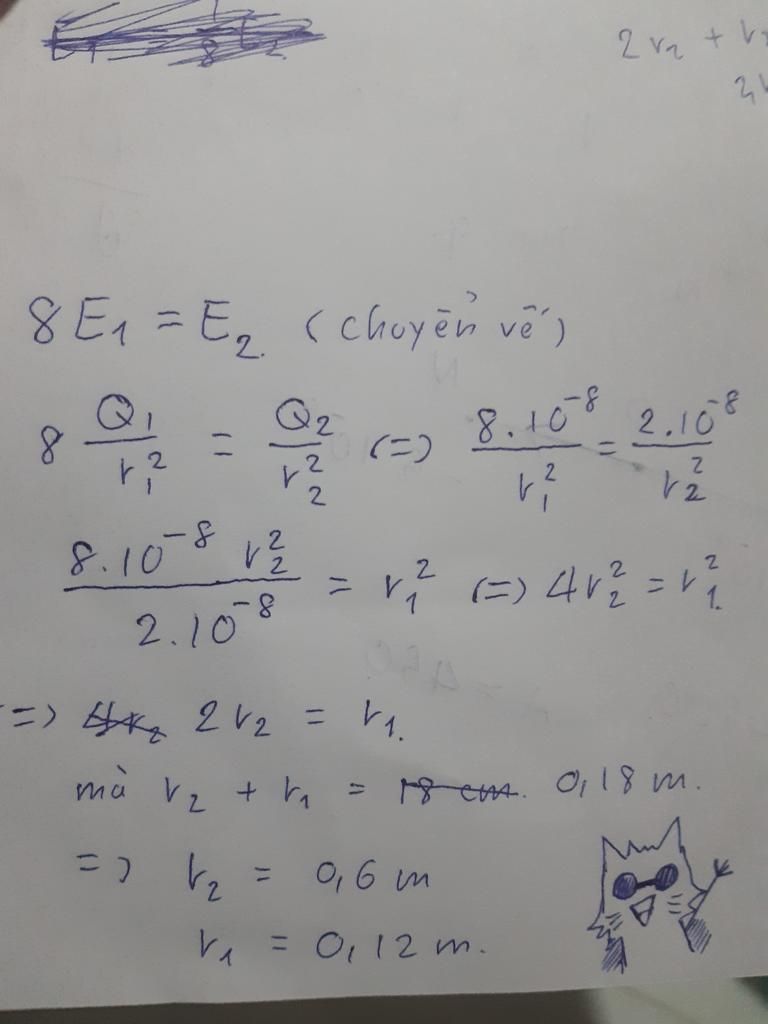 2r₂ + r
8E₁ = E₂. (chuyển vế)
8 Q₁/r₁² = Q₂/r₂² (=) 8.10⁻⁸/r₁² = 2.10⁻⁸/r₂²
8.10⁻⁸ r₂²/2.10⁻⁸ = r₁² (=) 4r₂² = r₁².
=) 4r₂ 2r₂ = r₁.
mà r₂ + r₁ = 18 cm. 0,18 m.
=) r₂ = 0,6 m
r₁ = 0,12 m.